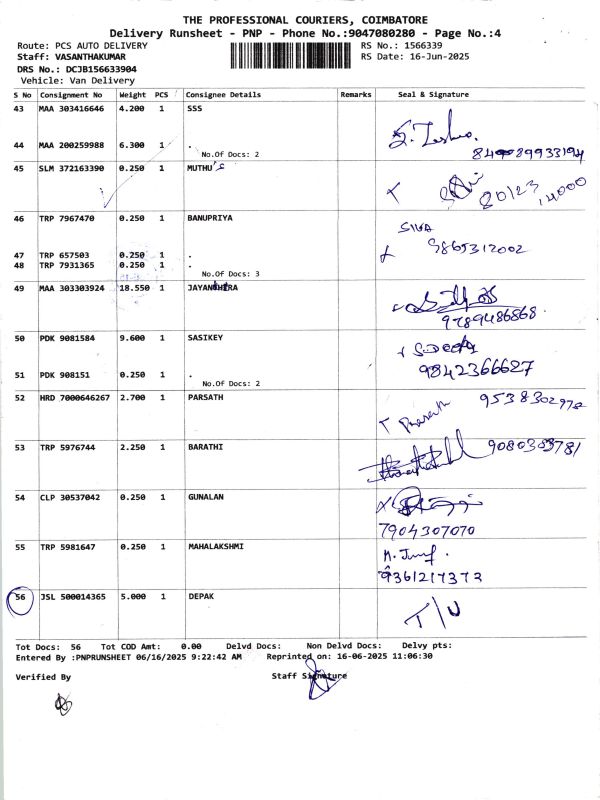 THE PROFESSIONAL COURIERS, COIMBATORE
Delivery Runsheet - PNP - Phone No.:9047080280 - Page No.:4
Route: PCS AUTO DELIVERY RS No.: 1566339
Staff: VASANTHAKUMAR RS Date: 16-Jun-2025
DRS No.: DCJB156633904
Vehicle: Van Delivery
S No Consignment No Weight PCS Consignee Details Remarks Seal & Signature
43 MAA 303416646 4.200 1 SSS
44 MAA 200259988 6.300 1 .
No.Of Docs: 2
45 SLM 372163390 0.250 1 MUTHU
46 TRP 7967470 0.250 1 BANUPRIYA
SIVA
9865312002
47 TRP 657503 0.250 1 .
48 TRP 7931365 0.250 1 .
No.Of Docs: 3
49 MAA 303303924 18.550 1 JAYANTHIRA
9789486868
50 PDK 9081584 9.600 1 SASIKEY
9842366627
51 PDK 908151 0.250 1 .
No.Of Docs: 2
52 HRD 7000646267 2.700 1 PARSATH
Prasath 9538302972
53 TRP 5976744 2.250 1 BARATHI
9080383781
54 CLP 30537042 0.250 1 GUNALAN
7904307070
55 TRP 5981647 0.250 1 MAHALAKSHMI
9361217372
56 JSL 500014365 5.000 1 DEPAK
T/U
Tot Docs: 56 Tot COD Amt: 0.00 Delvd Docs: Non Delvd Docs: Delvy pts:
Entered By :PNPRUNSHEET 06/16/2025 9:22:42 AM Reprinted on: 16-06-2025 11:06:30
Verified By Staff Signature